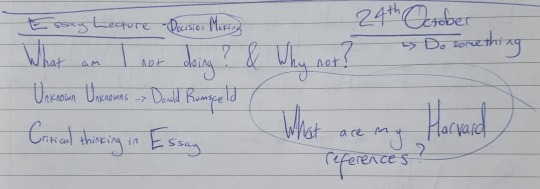 Essay Lecture - Decision Making
24th October
↳ Do something
What am I not doing? & Why not?
Unknown Unknowns -> Donald Rumsfeld
Critical thinking in Essay
What are my Harvard
references?